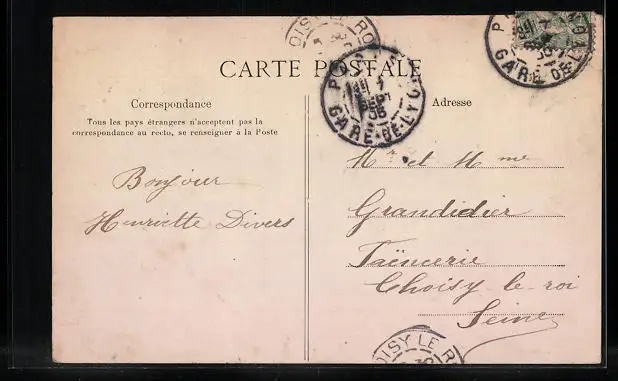 OISY LE RO
CARTE POSTALE
GARE DE LYON
GARE DE L
Correspondance
Tous les pays étrangers n'acceptent pas la
correspondance au recto, se renseigner à la Poste
Bonjour
Henriette Divers
Adresse
Mr et Mme
Grandidier
Faïencerie
Choisy-le-roi
Seine
OISY LE R